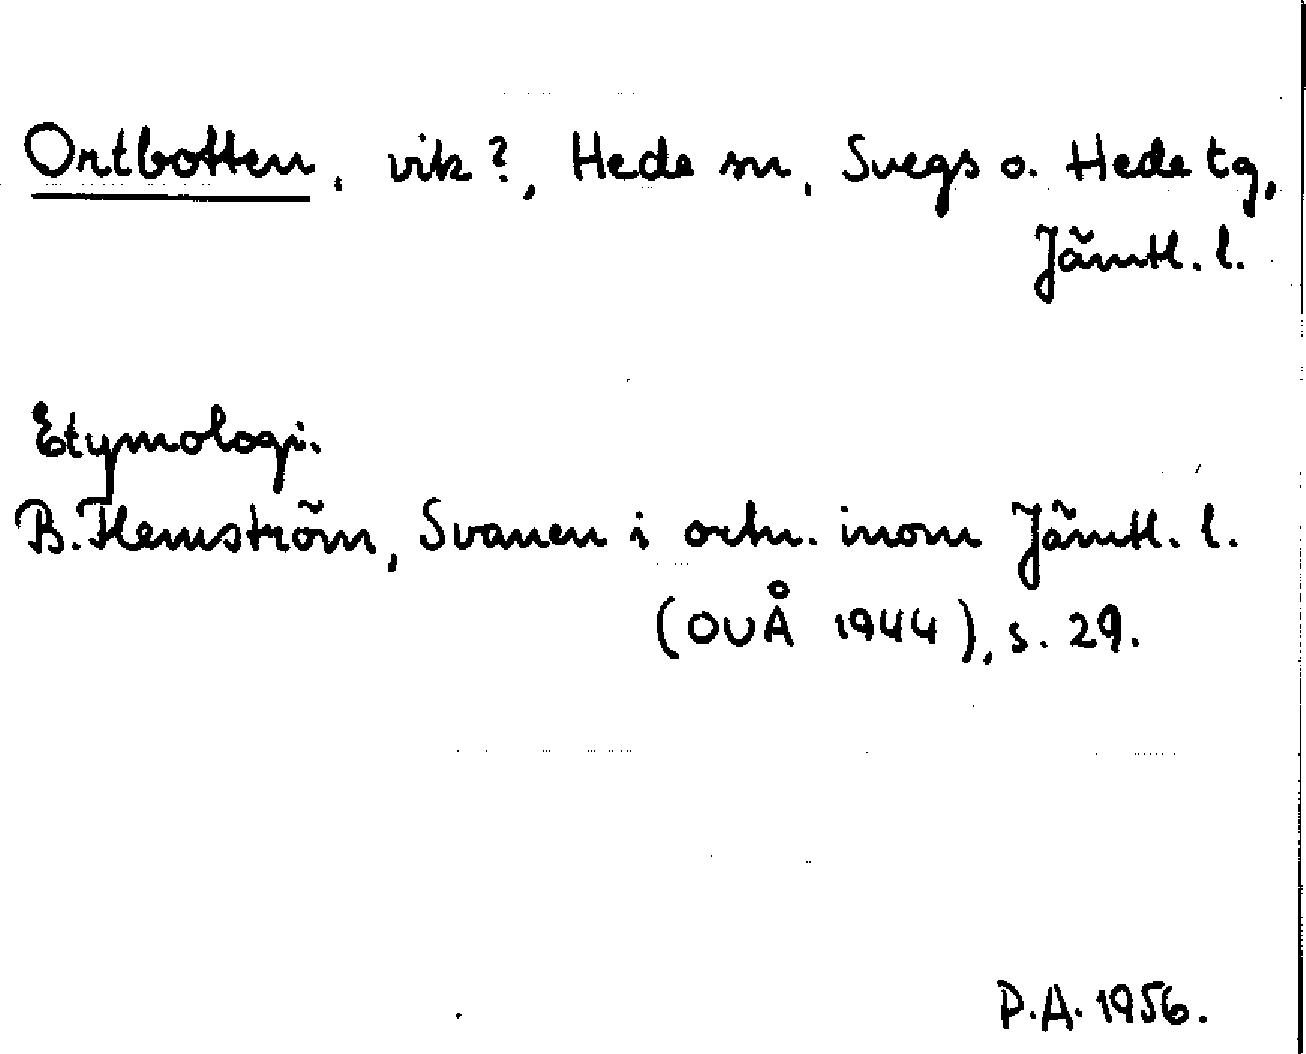 Ortbotten, vik?, Hede sn, Svegs o. Hede tg,
Jämtl. l.
Etymologi.
B. Flemström, Svanen i ortn. inom Jämtl. l.
(OUÅ 1944), s. 29.
P.A. 1956.